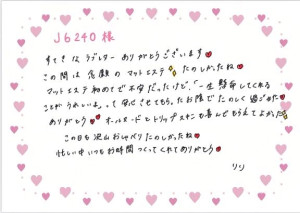 J6240様
すてきなラブレターありがとうございます
この間は念願のマットエステたのしかたね
マットエステ初めてで不安だったけど、「一生懸命してくれる
ことがうれしいよ」って安心させてもらったお陰でたのしく過ごせた
ありがとう オールヌードとトップスキンも喜んでもらえてよかった
この日も沢山おしゃべりたのしかたね
忙しい中いつもお時間つくってくれてありがとう
リン